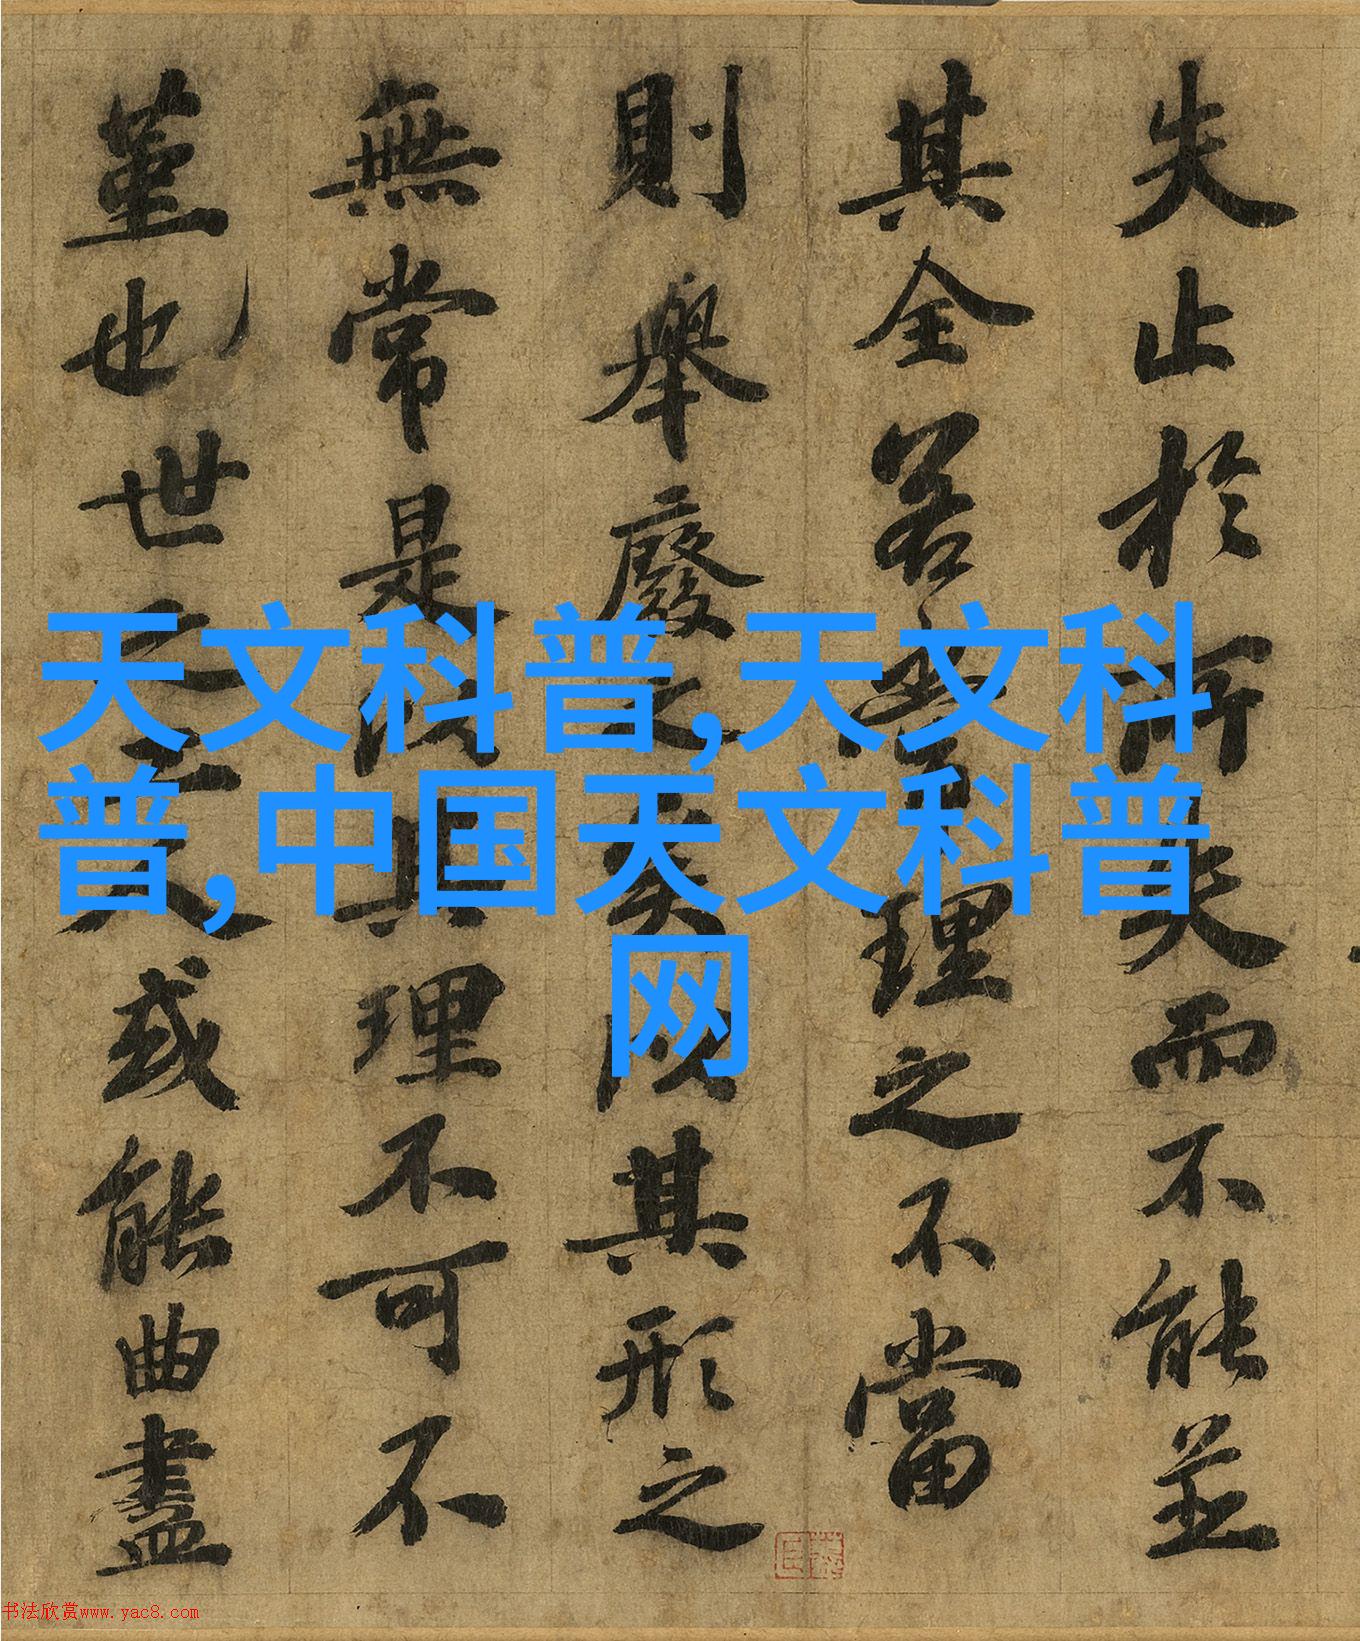 天文科普,天文科
普,中国天文科普
网
失止於所失而不能並
其全若常理之不當
則舉廢之矣以其形之
無常是以其理不可不
堇也世之工人或能曲盡
书法欣赏www.yac8.com